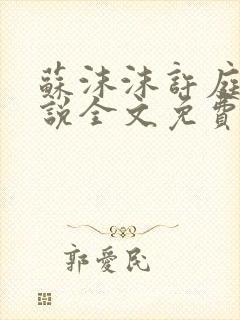 蘇沫沫許庭
說全文免費
郭愛民